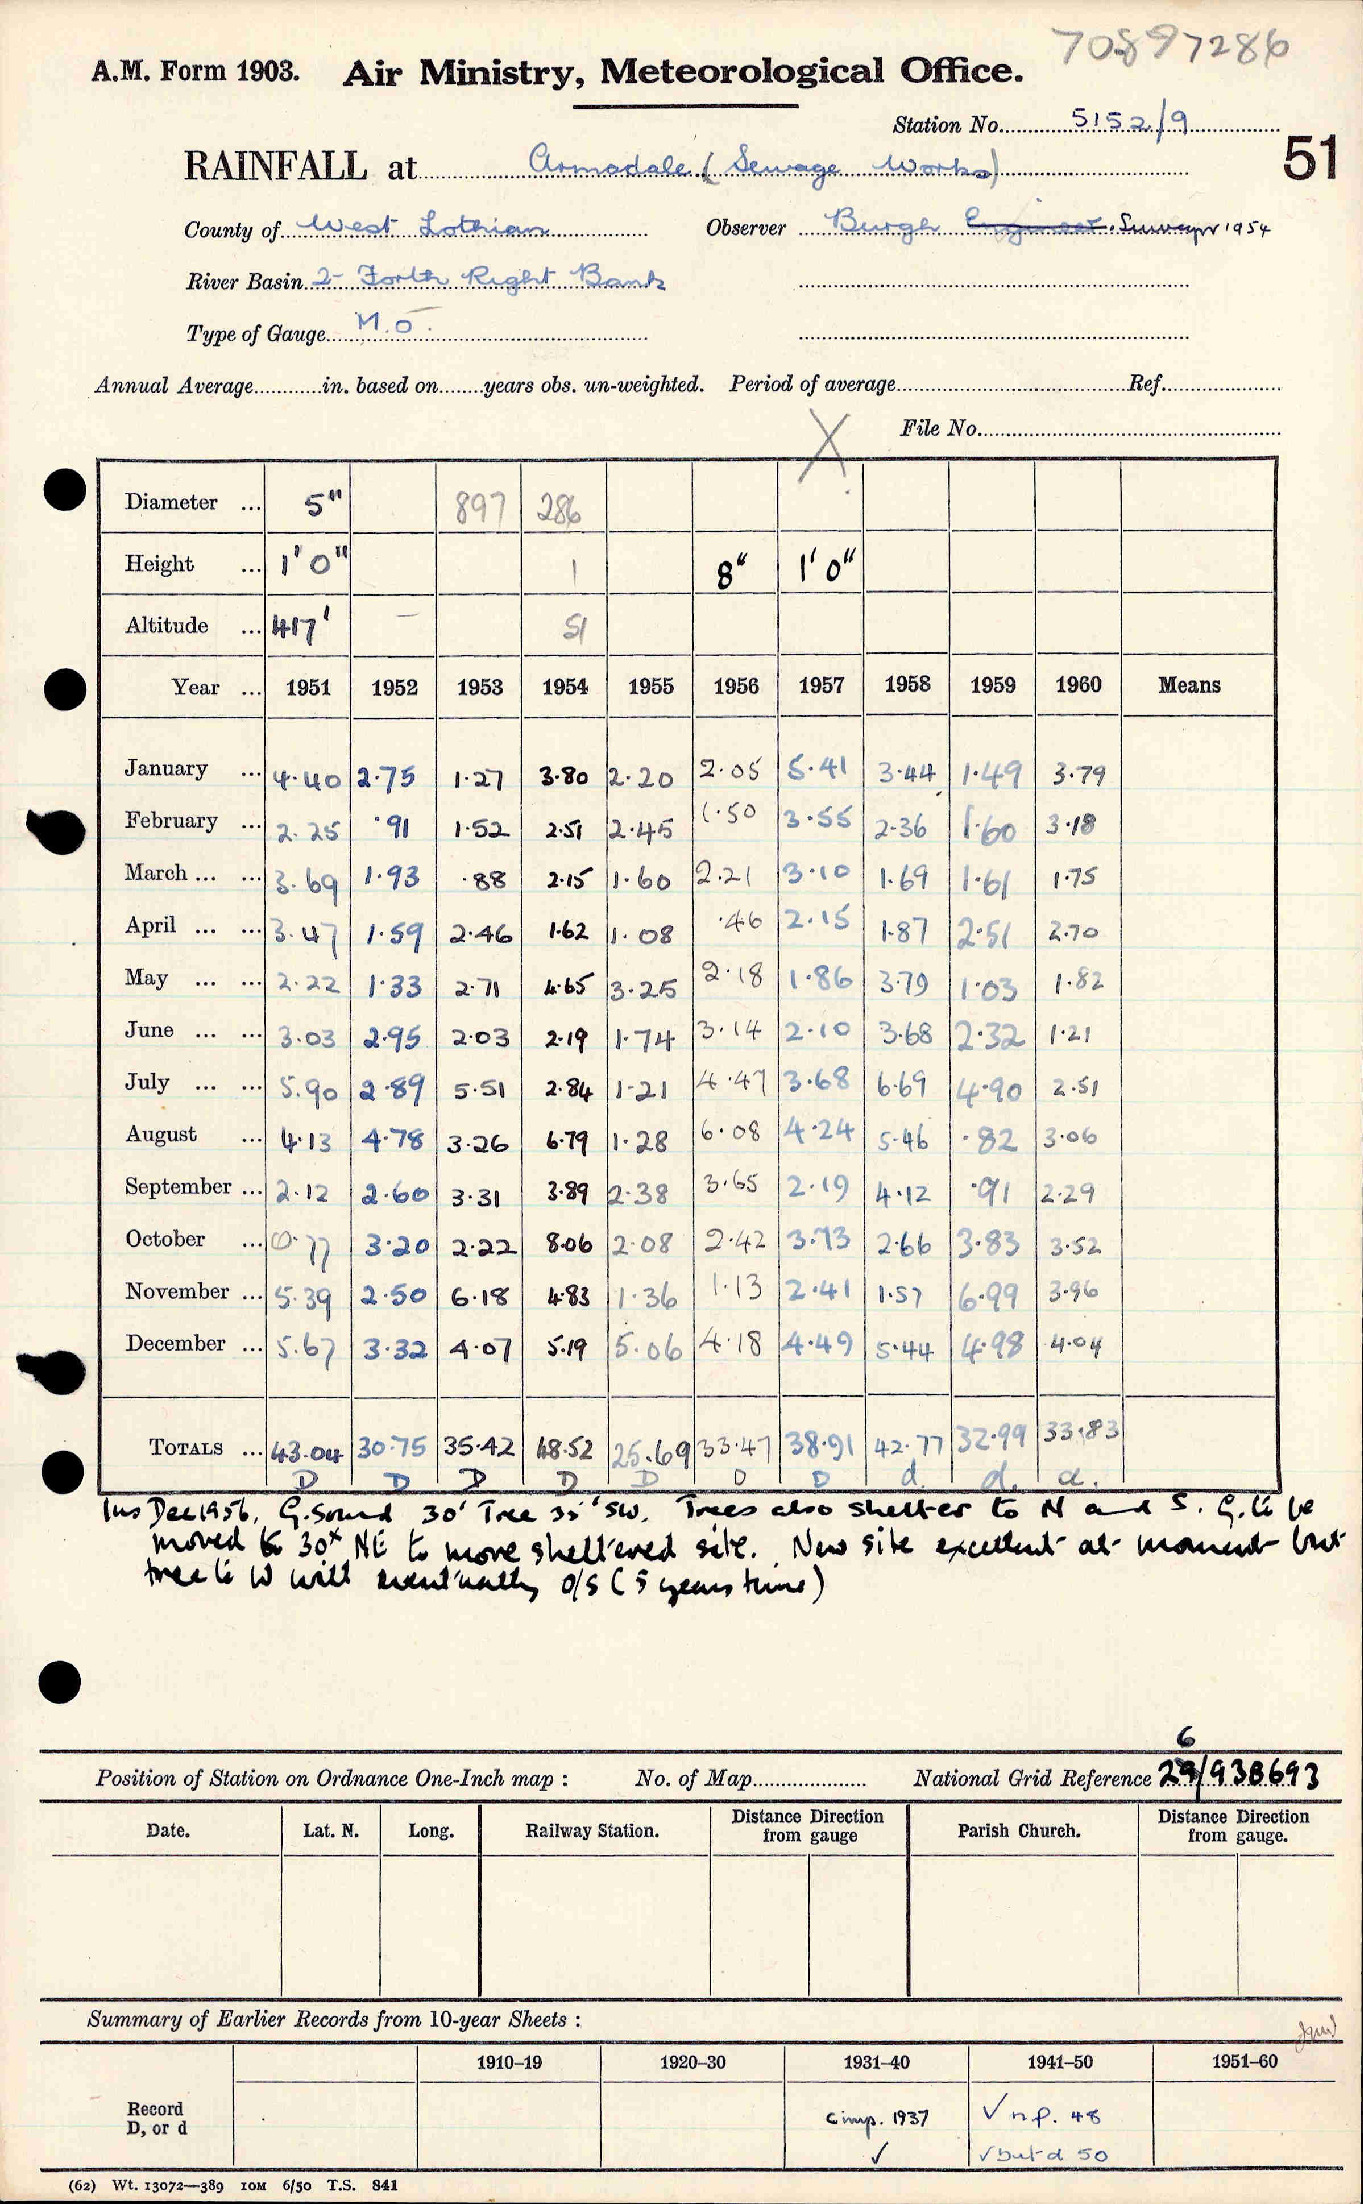 70897286
A.M. Form 1903. Air Ministry, Meteorological Office.
Station No. 5152/9
51
RAINFALL at Armadale (Sewage Works)
County of West Lothian Observer Burgh Engineer. Surveyor 1954
River Basin 2- Forth Right Bank
Type of Gauge M.O.
Annual Average in. based on years obs. un-weighted. Period of average Ref.
X File No.
Diameter ... 5" 897 286
Height ... 1' 0" 1 8" 1' 0"
Altitude ... 417' – 51
Year ... 1951 1952 1953 1954 1955 1956 1957 1958 1959 1960 Means
January ... 4.40 2.75 1.27 3.80 2.20 2.05 5.41 3.44 1.49 3.79
February ... 2.25 .91 1.52 2.51 2.45 1.50 3.55 2.36 1.60 3.18
March ... ... 3.69 1.93 .88 2.15 1.60 2.21 3.10 1.69 1.61 1.75
April ... ... 3.47 1.59 2.46 1.62 1.08 .46 2.15 1.87 2.51 2.70
May ... ... 2.22 1.33 2.71 4.65 3.25 2.18 1.86 3.79 1.03 1.82
June ... ... 3.03 2.95 2.03 2.19 1.74 3.14 2.10 3.68 2.32 1.21
July ... ... 5.90 2.89 5.51 2.84 1.21 4.47 3.68 6.69 4.90 2.51
August ... 4.13 4.78 3.26 6.79 1.28 6.08 4.24 5.46 .82 3.06
September ... 2.12 2.60 3.31 3.89 2.38 3.65 2.19 4.12 .91 2.29
October ... 0.77 3.20 2.22 8.06 2.08 2.42 3.73 2.66 3.83 3.52
November ... 5.39 2.50 6.18 4.83 1.36 1.13 2.41 1.57 6.99 3.96
December ... 5.67 3.32 4.07 5.19 5.06 4.18 4.49 5.44 4.98 4.04
TOTALS ... 43.04 30.75 35.42 48.52 25.69 33.47 38.91 42.77 32.99 33.83
D D D D D D D d d. d.
Ins Dec 1956. G. Sound 30' Tree 35' SW. Trees also shelter to N and S. G. to be
moved to 30x NE to more sheltered site. New site excellent at moment but
tree to W will eventually o/s (5 years time)
6
Position of Station on Ordnance One-Inch map : No. of Map National Grid Reference 29/938693
Date. Lat. N. Long. Railway Station. Distance Direction from gauge Parish Church. Distance Direction from gauge.
Summary of Earlier Records from 10-year Sheets :
1910–19 1920–30 1931–40 1941–50 1951–60
Record D, or d
cimp. 1937 ✓ n.p. 48
✓ ✓ but d 50
(62) Wt. 13072—389 10M 6/50 T.S. 841